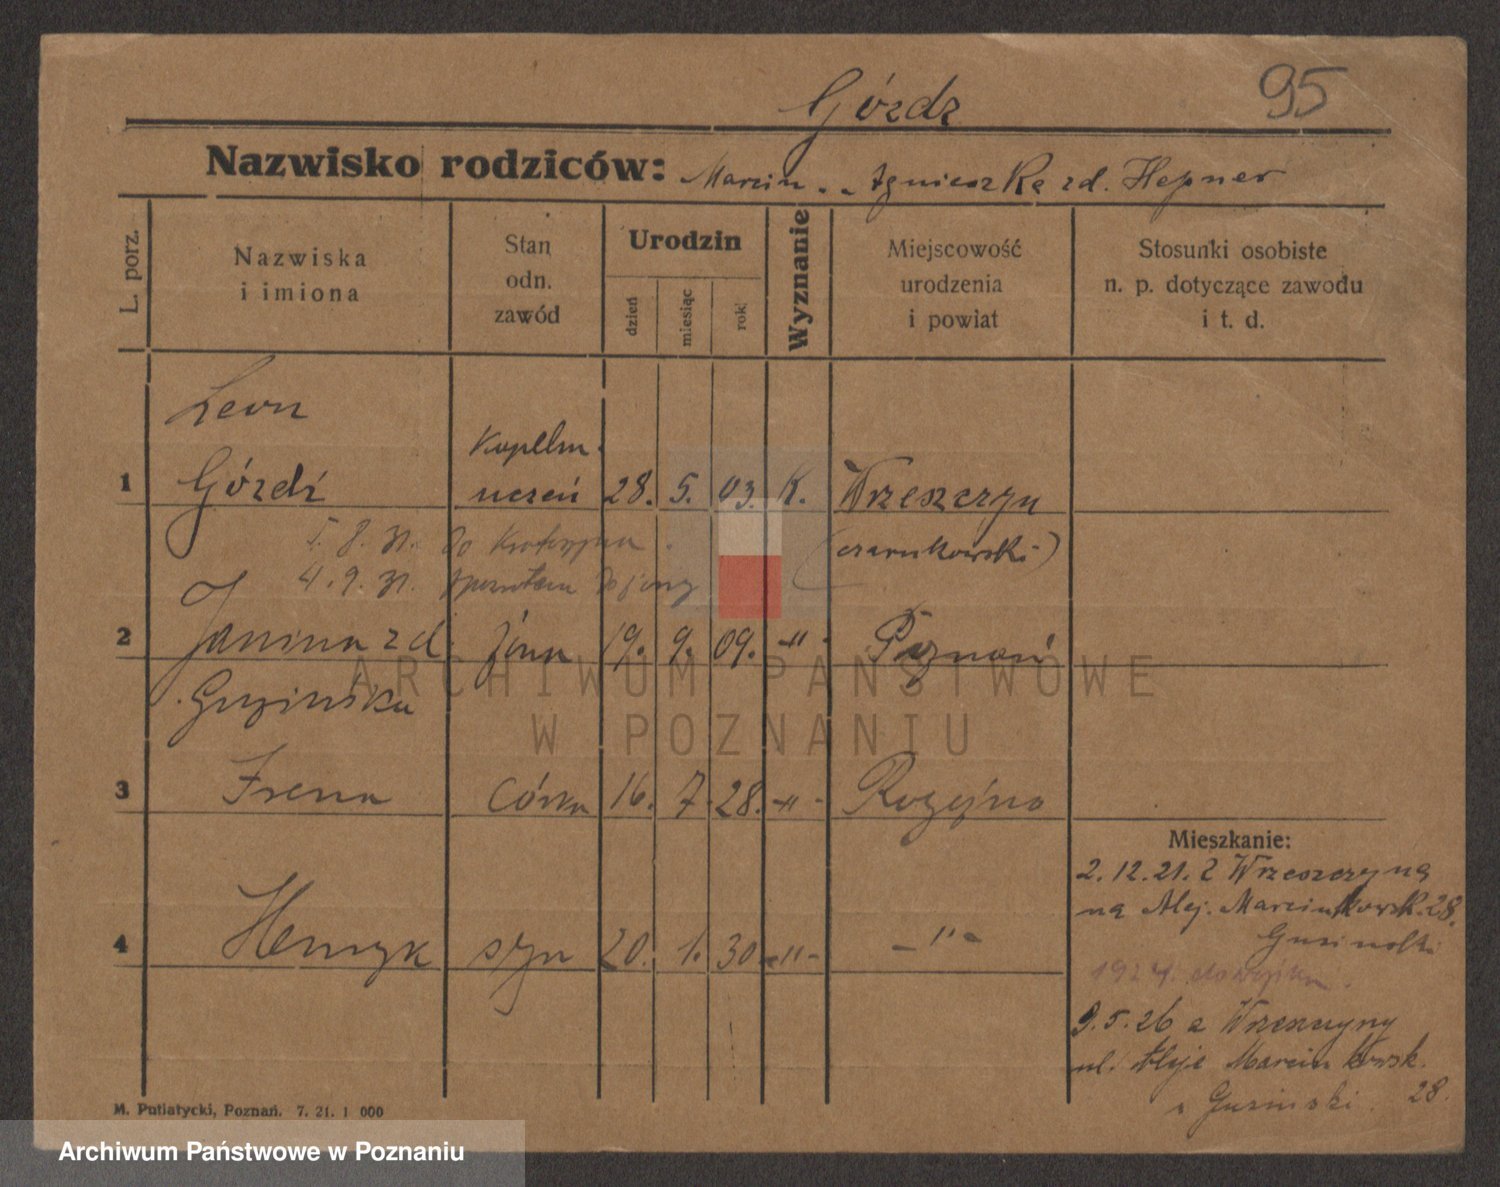 Gózdz
95
Nazwisko rodziców: Marcin. - Agnieszka zd. Hepner
L. porz.
Nazwiska i imiona
Stan odn. zawód
Urodzin
dzień
miesiąc
rok
Wyznanie
Miejscowość urodzenia i powiat
Stosunki osobiste n. p. dotyczące zawodu i t. d.
Leon
1 Góždź uczeń 28. 5. 03. K. Wrzeszczyn
5. 8. 31. do
(czarnkowski)
4. 9. 31.
2 Janina zd. żona 19. 9. 09. -"- Poznań
3 Irena córka 16. 7. 28. -"-
4 Henryk syn 20. 1. 30 -"- -"-
Mieszkanie:
2.12.21. z Wrzeszczyna
na Alej. Marcinkowsk. 28.
1924. do wojska.
9.5.26 z Wrzeszczyny
ul. Aleje Marcinkowsk.
28.
Gusinski
M. Putiatycki, Poznań. 7. 21. 1 000
ARCHIWUM PAŃSTWOWE
W POZNANIU
Archiwum Państwowe w Poznaniu